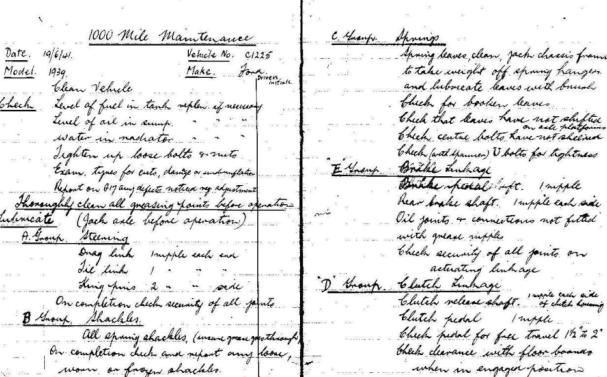 1000 Mile Maintenance
Date. 19/6/41. Vehicle No. C1225
Model. 1939. Make. Ford
Drivers initials
Clean Vehicle
Check Level of fuel in tank replen. if necessary
Level of oil in sump. " "
water in radiator " "
Tighten up loose bolts & nuts
Exam. tyres for cuts, damage or underinflation
Report on any defects noted
Thoroughly clean all greasing points before operation
Lubricate (Jack axle before operation)
A. Group. Steering
Drag link 1 nipple each end
Tie link 1 " " "
King pins 2 " " side
On completion check security of all joints.
B Group. Shackles.
All spring shackles, (ensure grease goes through)
On completion check and report any loose,
worn or frozen shackles.
C. Group. Springs
Spring leaves, clean, jack chassis frame
to take weight off spring hangers
and lubricate leaves with brush
Check for broken leaves.
Check that leaves have not shifted
on axle platforms
Check centre bolts have not sheared
Check (with spanner) U bolts for tightness
"E" Group. Brake Linkage
Brake pedal shaft. 1 nipple
Rear brake shaft. 1 nipple each side
Oil joints & connections not fitted
with grease nipple
Check security of all joints on
actuating linkage
"D" Group. Clutch Linkage
Clutch release shaft. 1 nipple each side
of clutch housing
Clutch pedal 1 nipple
Check pedal for free travel 1½" to 2"
Check clearance with floor boards
when in engaged position